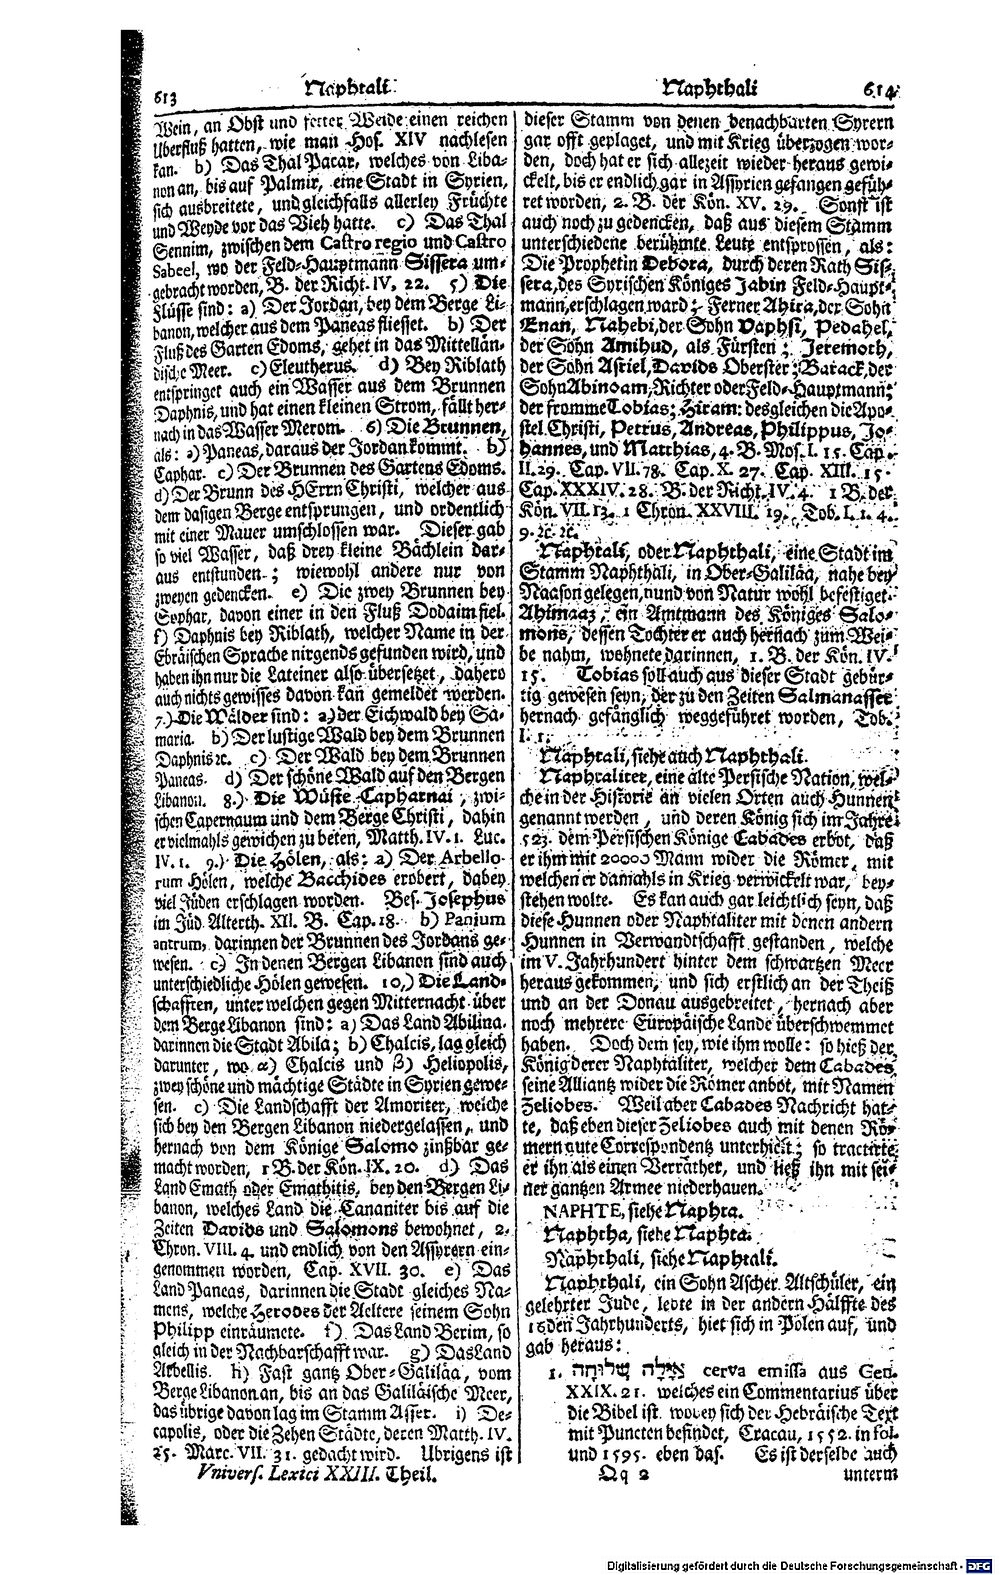 613 Naphtali
Naphthali 614
Wein, an Obst und fetter Weide einen reichen
Uberfluß hatten, wie man Hos. XIV nachlesen
kan. b) Das Thal Pacar, welches von Liba-
non an, bis auf Palmir, eine Stadt in Syrien,
sich ausbreitete, und gleichfalls allerley Früchte
und Weyde vor das Vieh hatte. c) Das Thal
Sennim, zwischen dem Castro regio und Castro
Sabeel, wo der Feld-Hauptmann Sissera um-
gebracht worden, B. der Richt. IV. 22. 5) Die
Flüsse sind: a) Der Jordan, bey dem Berge Li-
banon, welcher aus dem Paneas fliesset. b) Der
Fluß des Garten Edoms, gehet in das Mittellän-
dische Meer. c) Eleutherus. d) Bey Riblath
entspringet auch ein Wasser aus dem Brunnen
Daphnis, und hat einen kleinen Strom, fällt her-
nach in das Wasser Merom. 6) Die Brunnen,
als: a) Paneas, daraus der Jordan kommt. b)
Caphar. c) Der Brunnen des Gartens Edoms.
d) Der Brunn des HErrn Christi, welcher aus
dem dasigen Berge entsprungen, und ordentlich
mit einer Mauer umschlossen war. Dieser gab
so viel Wasser, daß drey kleine Bächlein dar-
aus entstunden; wiewohl andere nur von
zweyen gedencken. e) Die zwey Brunnen bey
Sophar, davon einer in den Fluß Dodaim fiel.
f) Daphnis bey Riblath, welcher Name in der
Ebräischen Sprache nirgends gefunden wird, und
haben ihn nur die Lateiner also übersetzet, dahero
auch nichts gewisses davon kan gemeldet werden.
7.) Die Wälder sind: a) der Eichwald bey Sa-
maria. b) Der lustige Wald bey dem Brunnen
Daphnis ꝛc. c) Der Wald bey dem Brunnen
Paneas. d) Der schöne Wald auf den Bergen
Libanon. 8.) Die Wüste Capharnai, zwi-
schen Capernaum und dem Berge Christi, dahin
er vielmahls gewichen zu beten, Matth. IV. 1. Luc.
IV. 1. 9.) Die Hölen, als: a) Der Arbello-
rum Hölen, welche Bacchides erobert, dabey
viel Jüden erschlagen worden. Bes. Josephus
im Jüd Alterth. XII. B. Cap. 18. b) Panium
antrum, darinnen der Brunnen des Jordans ge-
wesen. c) In denen Bergen Libanon sind auch
unterschiedliche Hölen gewesen. 10.) Die Land-
schafften, unter welchen gegen Mitternacht über
dem Berge Libanon sind: a) Das Land Abilina.
darinnen die Stadt Abila; b) Chalcis, lag gleich
darunter, wo α) Chalcis und β) Heliopolis,
zwey schöne und mächtige Städte in Syrien gewe-
sen. c) Die Landschafft der Amoriter, welche
sich bey den Bergen Libanon niedergelassen, und
hernach von dem Könige Salomo zinßbar ge-
macht worden, 1 B. der Kön. IX. 20. d) Das
Land Emath oder Emathitis, bey den Bergen Li-
banon, welches Land die Cananiter bis auf die
Zeiten Davids und Salomons bewohnet, 2.
Chron. VIII. 4. und endlich von den Assyrern ein-
genommen worden, Cap. XVII. 30. e) Das
Land Paneas, darinnen die Stadt gleiches Na-
mens, welche Herodes der Aeltere seinem Sohn
Philipp einräumete. f) Das Land Berim, so
gleich in der Nachbarschafft war. g) Das Land
Arbellis. h) Fast gantz Ober-Galiläa, vom
Berge Libanon an, bis an das Galiläische Meer,
das übrige davon lag im Stamm Asser. i) De-
capolis, oder die Zehen Städte, deren Matth. IV.
25. Marc. VII. 31. gedacht wird. Ubrigens ist
Univers. Lexici XXIII. Theil.
dieser Stamm von denen benachbarten Syrern
gar offt geplaget, und mit Krieg überzogen wor-
den, doch hat er sich allezeit wieder heraus gewi-
ckelt, bis er endlich gar in Assyrien gefangen gefüh-
ret worden, 2. B. der Kön. XV. 29. Sonst ist
auch noch zu gedencken, daß aus diesem Stamm
unterschiedene berühmte Leute entsprossen, als:
Die Prophetin Debora, durch deren Rath Sis-
sera, des Syrischen Königes Jabin Feld-Haupt-
mann, erschlagen ward; Ferner Ahira, der Sohn
Enan, Nahebi, der Sohn Vaphsi, Pedahel,
der Sohn Amihud, als Fürsten; Jeremoth,
der Sohn Asriel, Davids Oberster; Barack, der
Sohn Abinoam, Richter oder Feld-Hauptmann;
der fromme Tobias; Hiram: desgleichen die Apo-
stel Christi, Petrus, Andreas, Philippus, Jo-
hannes, und Matthias, 4. B. Mos. I. 15. Cap.
II. 29. Cap. VII. 78. Cap. X. 27. Cap. XIII. 15.
Cap. XXXIV. 28. B. der Richt. IV. 4. 1 B. der
Kön. VII. 13. 1 Chron. XXVIII. 19. Tob. I. 1. 4.
9. ꝛc. ꝛc.
Naphtali, oder Naphthali, eine Stadt im
Stamm Naphthali, in Ober-Galiläa, nahe bey
Naason gelegen, und von Natur wohl befestiget.
Ahimaaz, ein Amtmann des Königes Salo-
mons, dessen Tochter er auch hernach zum Wei-
be nahm, wohnete darinnen, 1. B. der Kön. IV.
15. Tobias soll auch aus dieser Stadt gebür-
tig gewesen seyn, der zu den Zeiten Salmanasser
hernach gefänglich weggeführet worden, Tob.
I. 1.
Naphtali, siehe auch Naphthali.
Naphtaliter, eine alte Persische Nation, wel-
che in der Historie an vielen Orten auch Hunnen
genannt werden, und deren König sich im Jahre
523. dem Persischen Könige Cabades erbot, daß
er ihm mit 20000 Mann wider die Römer, mit
welchen er damahls in Krieg verwickelt war, bey-
stehen wolte. Es kan auch gar leichtlich seyn, daß
diese Hunnen oder Naphtaliter mit denen andern
Hunnen in Verwandtschafft gestanden, welche
im V. Jahrhundert hinter dem schwartzen Meer
heraus gekommen, und sich erstlich an der Theiß
und an der Donau ausgebreitet, hernach aber
noch mehrere Europäische Lande überschwemmet
haben. Doch dem sey, wie ihm wolle: so hieß der
König derer Naphtaliter, welcher dem Cabades
seine Alliantz wider die Römer anbot, mit Namen
Zeliobes. Weil aber Cabades Nachricht hat-
te, daß eben dieser Zeliobes auch mit denen Rö-
mern gute Correspondentz unterhielt; so tractirte
er ihn als einen Verräther, und ließ ihn mit sei-
ner gantzen Armee niederhauen.
NAPHTE, siehe Naphta.
Naphtha, siehe Naphta.
Naphthali, siehe Naphtali.
Naphthali, ein Sohn Ascher Altschüler, ein
gelehrter Jude, lebte in der andern Hälffte des
16den Jahrhunderts, hielt sich in Polen auf, und
gab heraus:
1. אילה שלוחה cerva emissa aus Gen.
XXIX. 21. welches ein Commentarius über
die Bibel ist, wobey sich der Hebräische Text
mit Puncten befindet, Cracau, 1552. in fol.
und 1595. eben das. Es ist derselbe auch
Qq 2 unterm
Digitalisierung gefördert durch die Deutsche Forschungsgemeinschaft - DFG